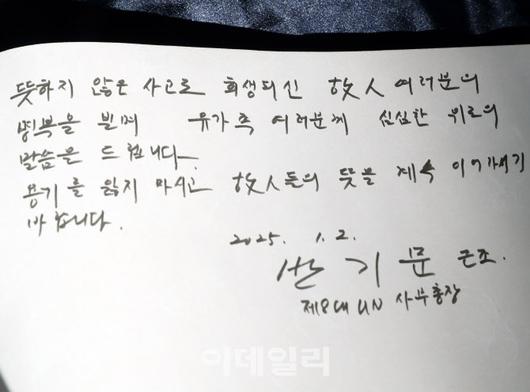 뜻하지 않은 사고로 희생되신 故人 여러분의
명복을 빌며 유가족 여러분께 심심한 위로의
말씀을 드립니다.
용기를 잃지 마시고 故人들의 뜻을 계속 이어가시기
바랍니다.
2025. 1. 2.
반기문 근조.
제8대 UN 사무총장
이데일리